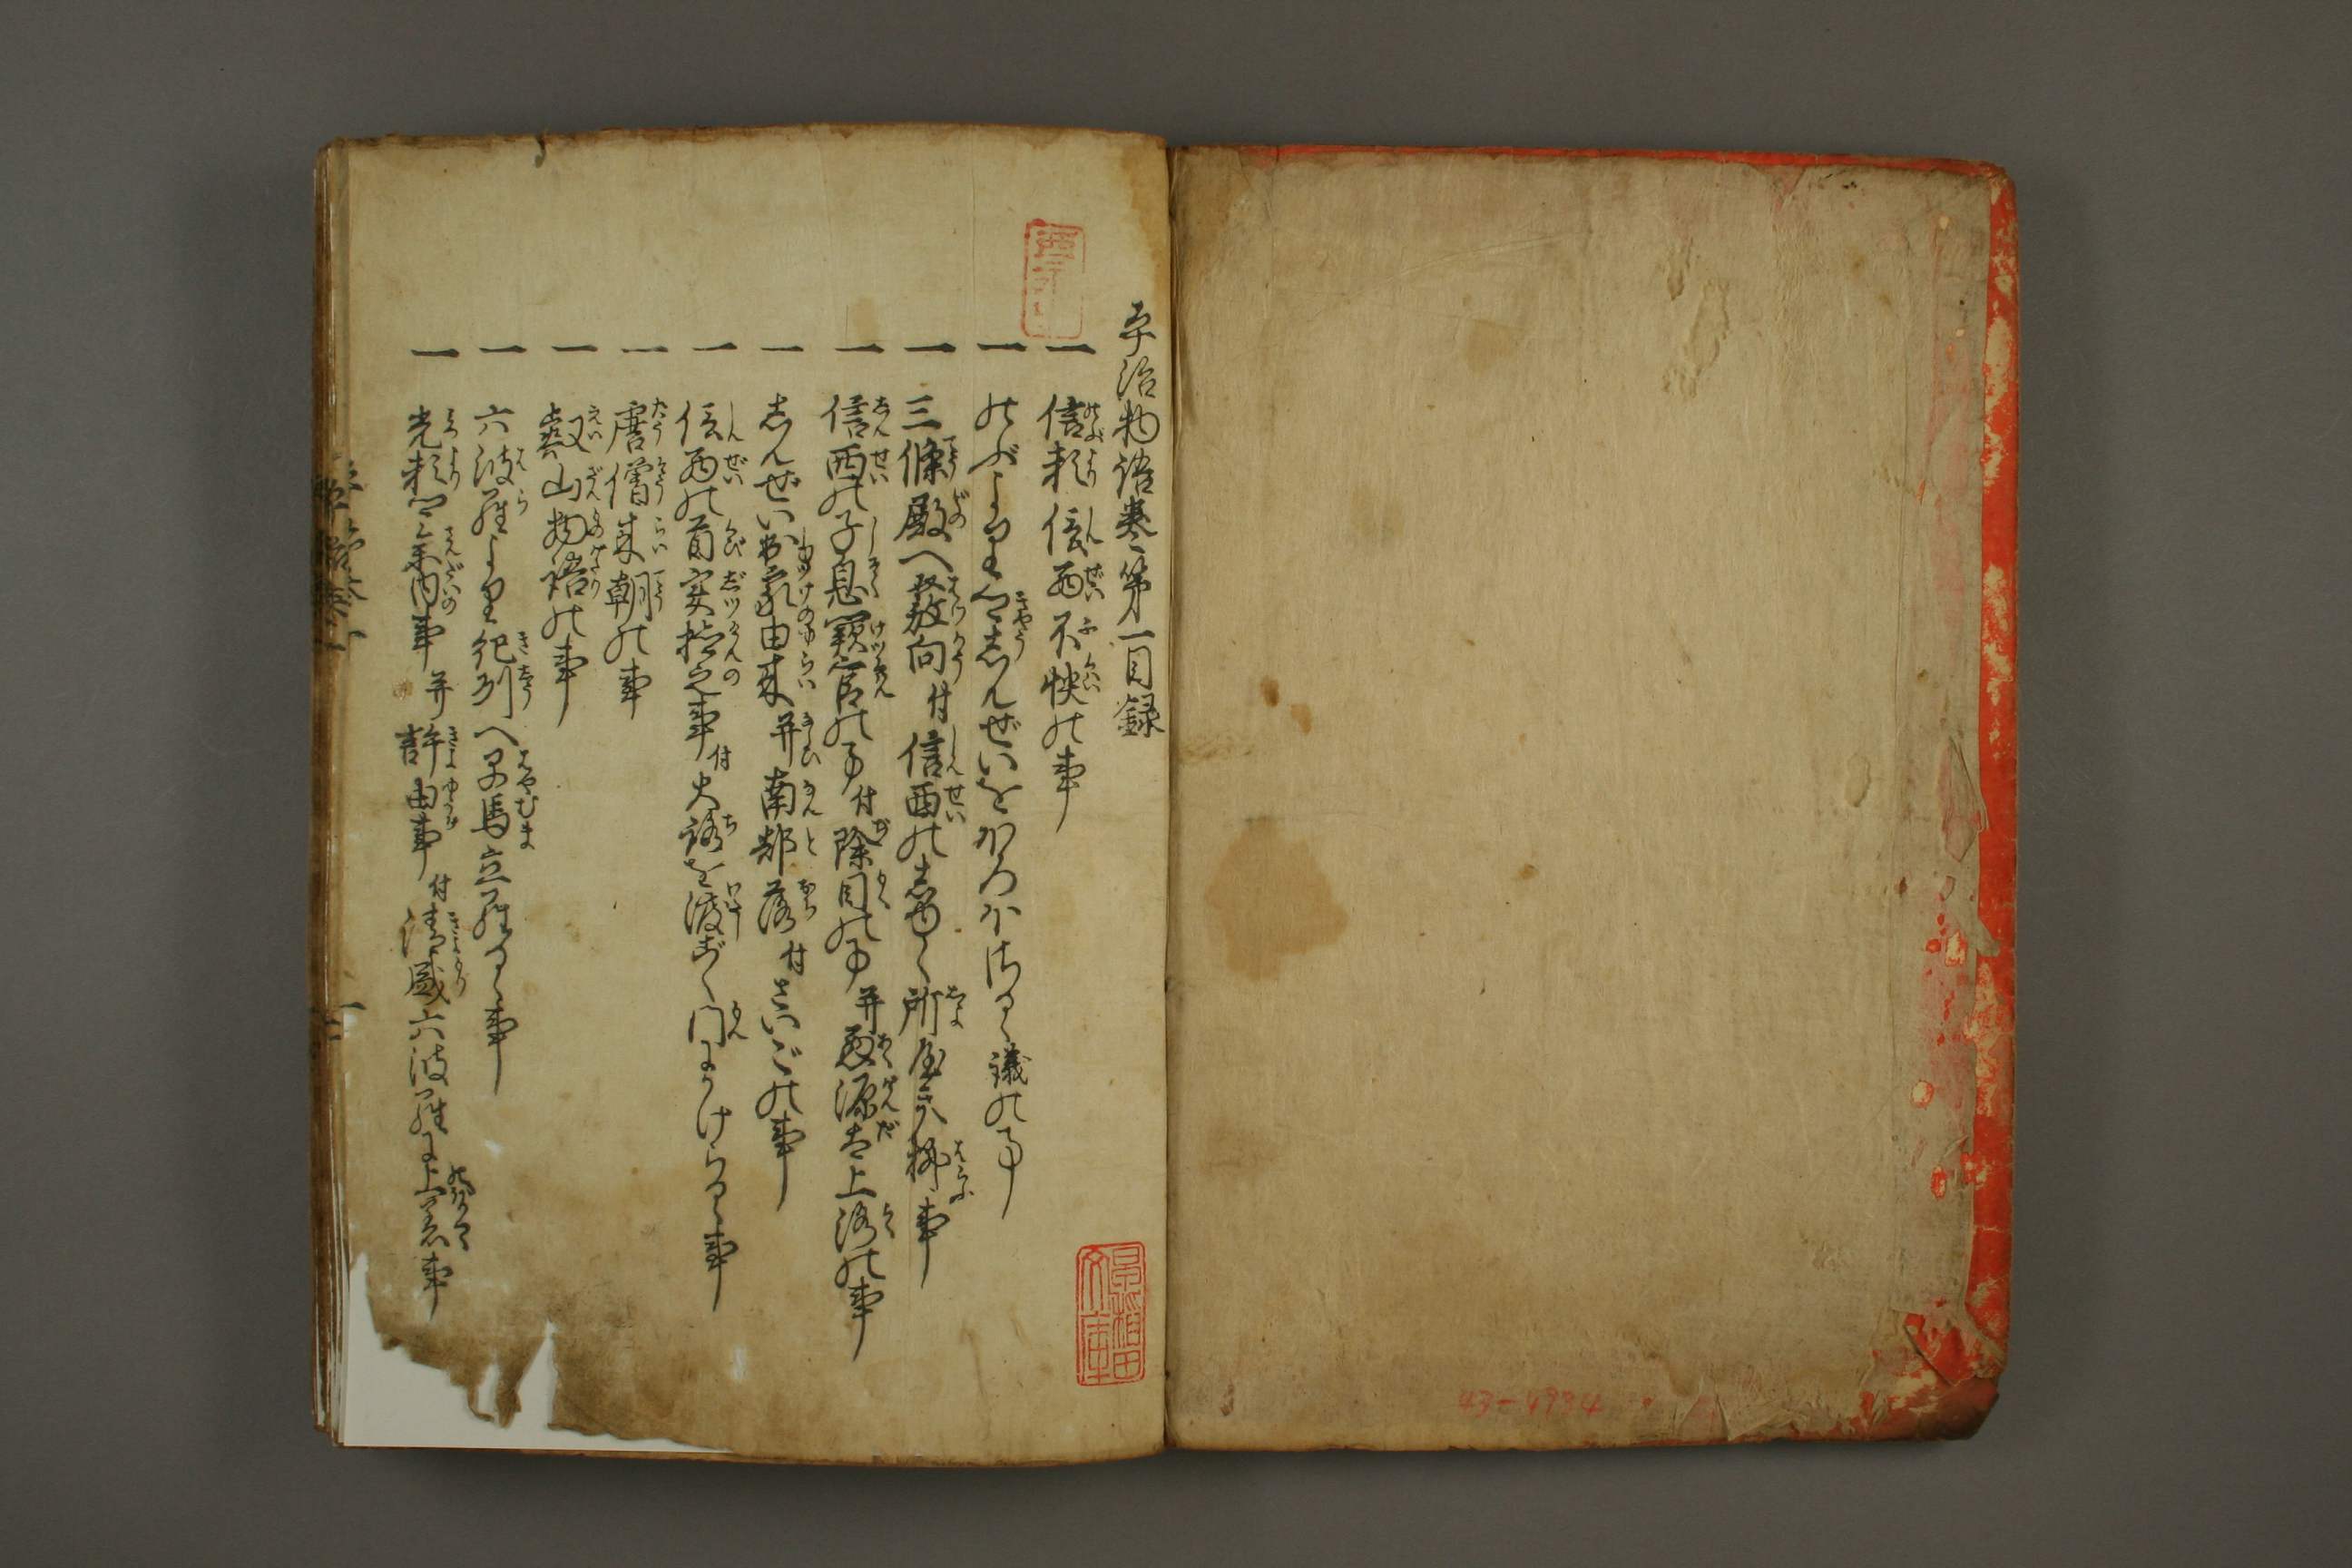 平治物語巻第一目録
一 信頼信西不快の事
一 のぶより卿しんぜいをほろぼさるゝ議の事
一 三條殿へ發向付信西のしゆく所屋き拂事
一 信西の子息闕官の事付除目の事并悪源太上洛の事
一 しんぜい出家由来并南都落付さいごの事
一 信西の首実檢之事付大路を渡ごく門にかけらるゝ事
一 唐僧来朝の事
一 叡山物語の事
一 六波羅より紀列へ早馬立らるゝ事
一 光頼卿参内事并許由事付清盛六波羅に上着事
文庫
43-4984